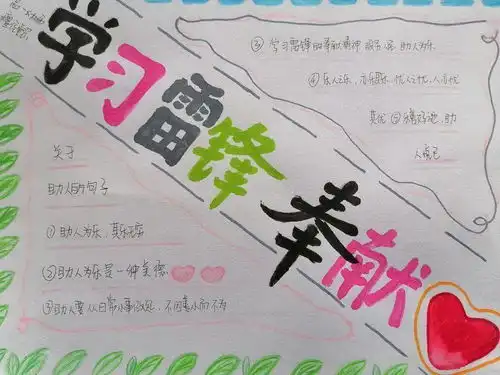 学习雷锋奉献
关于
助人的句子
①助人为乐,其乐无穷
②助人为乐是一种美德
③助人要从日常小事做起,不因善小而不为
③学习雷锋的奉献精神
助人为乐
④乐人之乐,亦乐其乐,忧人之忧,人亦忧
其忧⑤
助